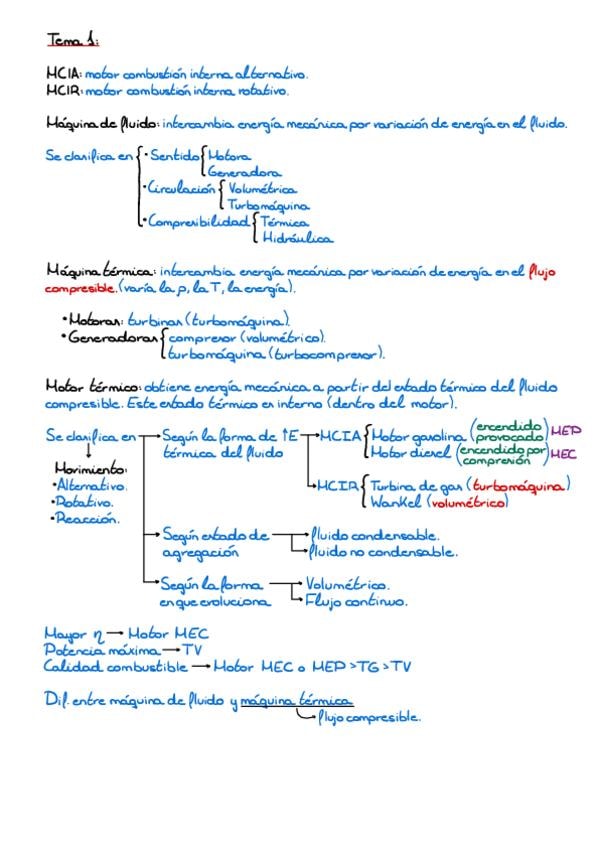 Tema 1:
MCIA: motor combustión interna alternativo.
MCIR: motor combustión interna rotativo.
Máquina de fluido: intercambia energía mecánica por variación de energía en el fluido.
Se clasifica en { · Sentido { Motora
Generadora
· Circulación { Volumétrica
Turbomáquina
· Compresibilidad { Térmica
Hidráulica
Máquina térmica: intercambia energía mecánica por variación de energía en el flujo
compresible. (varía la p, la T, la energía).
• Motoras: turbinas (turbomáquina).
• Generadoras { compresor (volumétrico).
turbomáquina (turbocompresor).
Motor térmico: obtiene energía mecánica a partir del estado térmico del fluido
compresible. Este estado térmico es interno (dentro del motor).
Se clasifica en → Según la forma de ↑E → MCIA { Motor gasolina (encendido provocado) MEP
térmica del fluido Motor diesel (encendido por compresión) MEC
Movimiento:
• Alternativo.
• Rotativo.
• Reacción.
→ MCIR { Turbina de gas (turbomáquina)
Wankel (volumétrico)
→ Según estado de → fluido condensable.
agregación → fluido no condensable.
→ Según la forma → Volumétrico.
en que evoluciona → Flujo continuo.
Mayor η → Motor MEC
Potencia máxima → TV
Calidad combustible → Motor MEC o MEP > TG > TV
Dif. entre máquina de fluido y máquina térmica
→ flujo compresible.